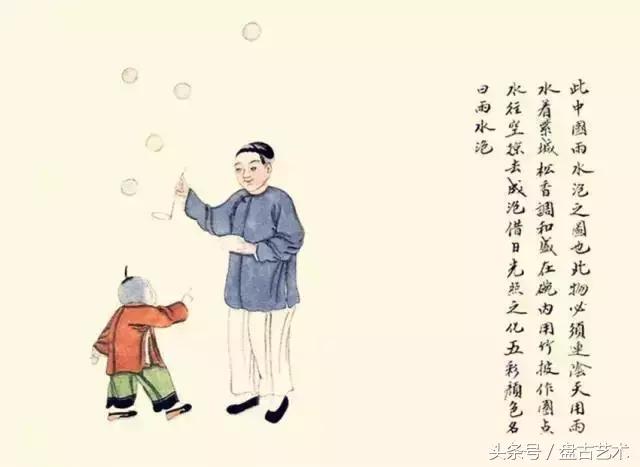 此中國雨水泡之圖也此物必須連陰天用雨
水着紫城松香調和盛在碗内用竹披作圈点
水往空掠去成泡借日光照之化五彩顔色名
曰雨水泡
头条号／盘古艺术